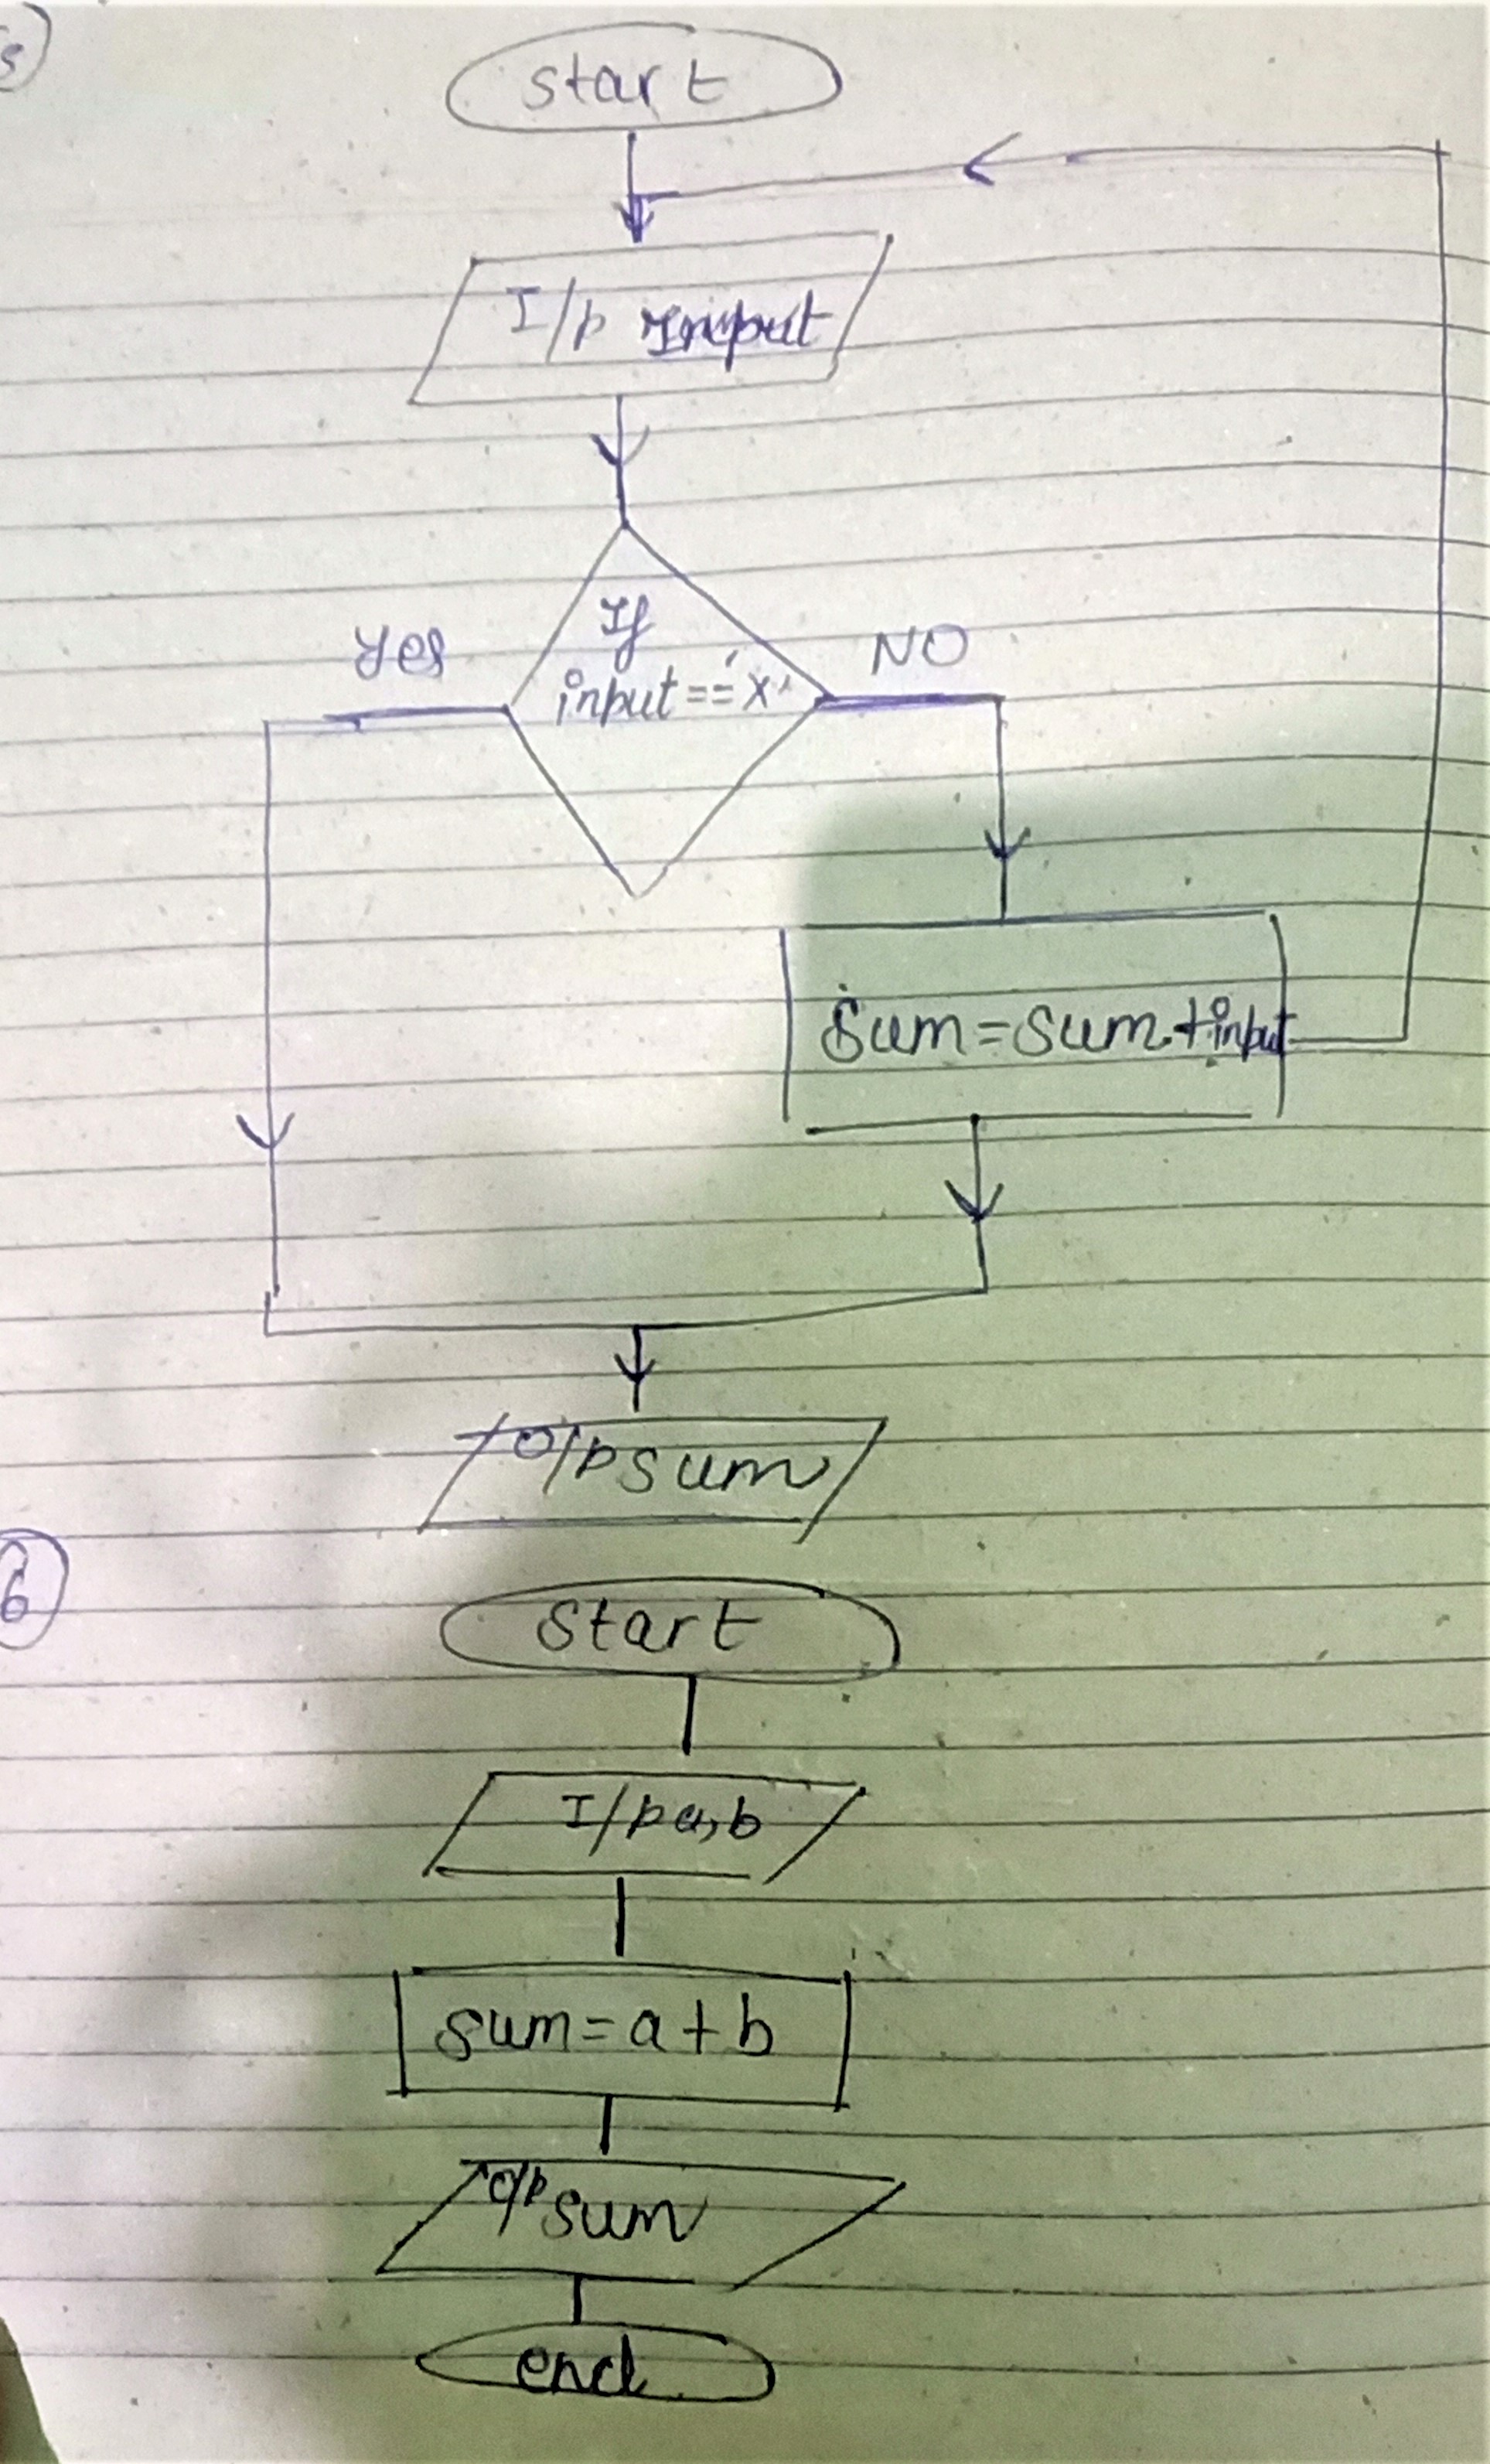 start
I/p Input
If
Yes
NO
input == 'x'
Sum = Sum + input
O/p sum
6
Start
I/p a, b
sum = a + b
O/p sum
end